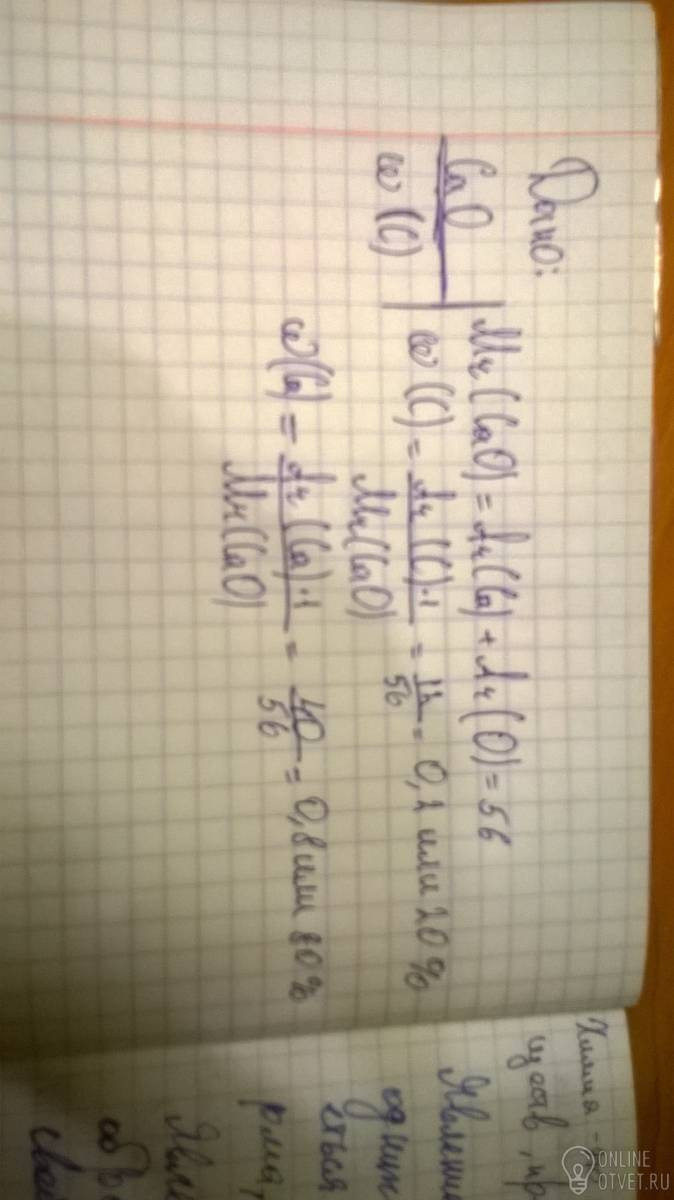 Дано:
CaO
ω (C)
Mr(CaO) = Ar(Ca) + Ar(O) = 56
ω (C) = Ar (C)·1 / Mr(CaO) = 12 / 56 = 0,2 или 20%
ω(Ca) = Ar (Ca)·1 / Mr(CaO) = 40 / 56 = 0,8 или 80%
Химия -
ществ, пр
Явлени
один
рма,
Явле
обр
ONLINE
OTVET.RU